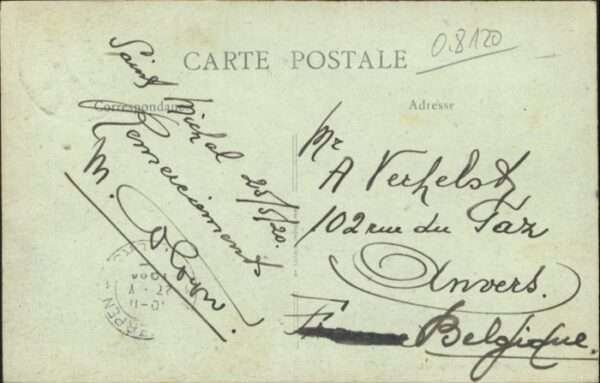 CARTE POSTALE
0.8120
Correspondance
Adresse
Saint Michel 25/5/20.
Remerciements
M.
Mr
A Verhelst
102 rue du Gaz
Anvers.
Belgique.